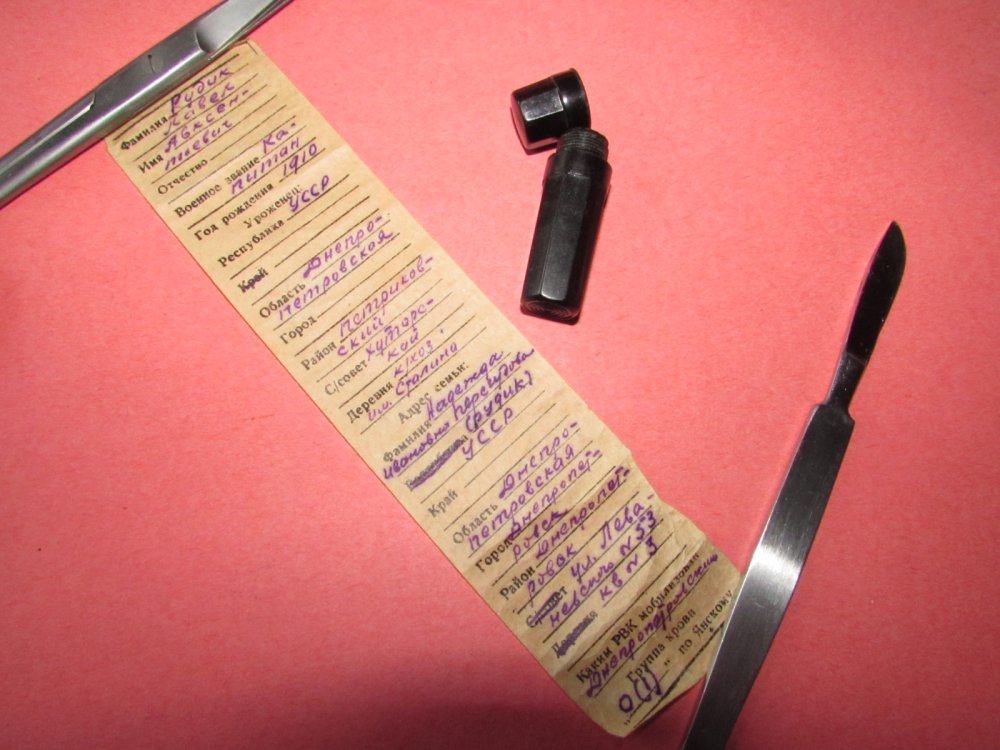 Фамилия Рудик
Имя Павел
Авксен-
Отчество тьевич
Военное звание Ка-
питан
Год рождения 1910
Уроженец:
Республика УССР
Край
Область Днепро-
петровская
Город
Район Петриков-
ский
С/совет Хутарс-
кой
Деревня к/хоз
им. Сталина
Адрес семьи:
Фамилия Надежда
Ивановна Персидова
(Рудик)
УССР
Край
Область Днепро-
петровская
Город Днепропет-
ровск
Район Днепропет-
ровск
С/совет ул. Лева-
невского N 53
Деревня кв N 5
Каким РВК мобилизован
Днепропетровским
Группа крови
O(I) " по Янскому